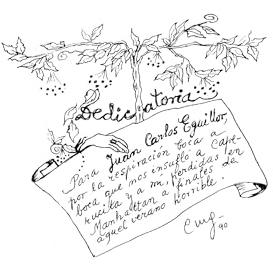 Dedicatoria
Para Juan Carlos Eguillor,
por la respiración boca a
boca que nos insufló a Cape-
rucita y a mí, perdidas en
Manhattan a finales de
aquel verano horrible.
CMG
90